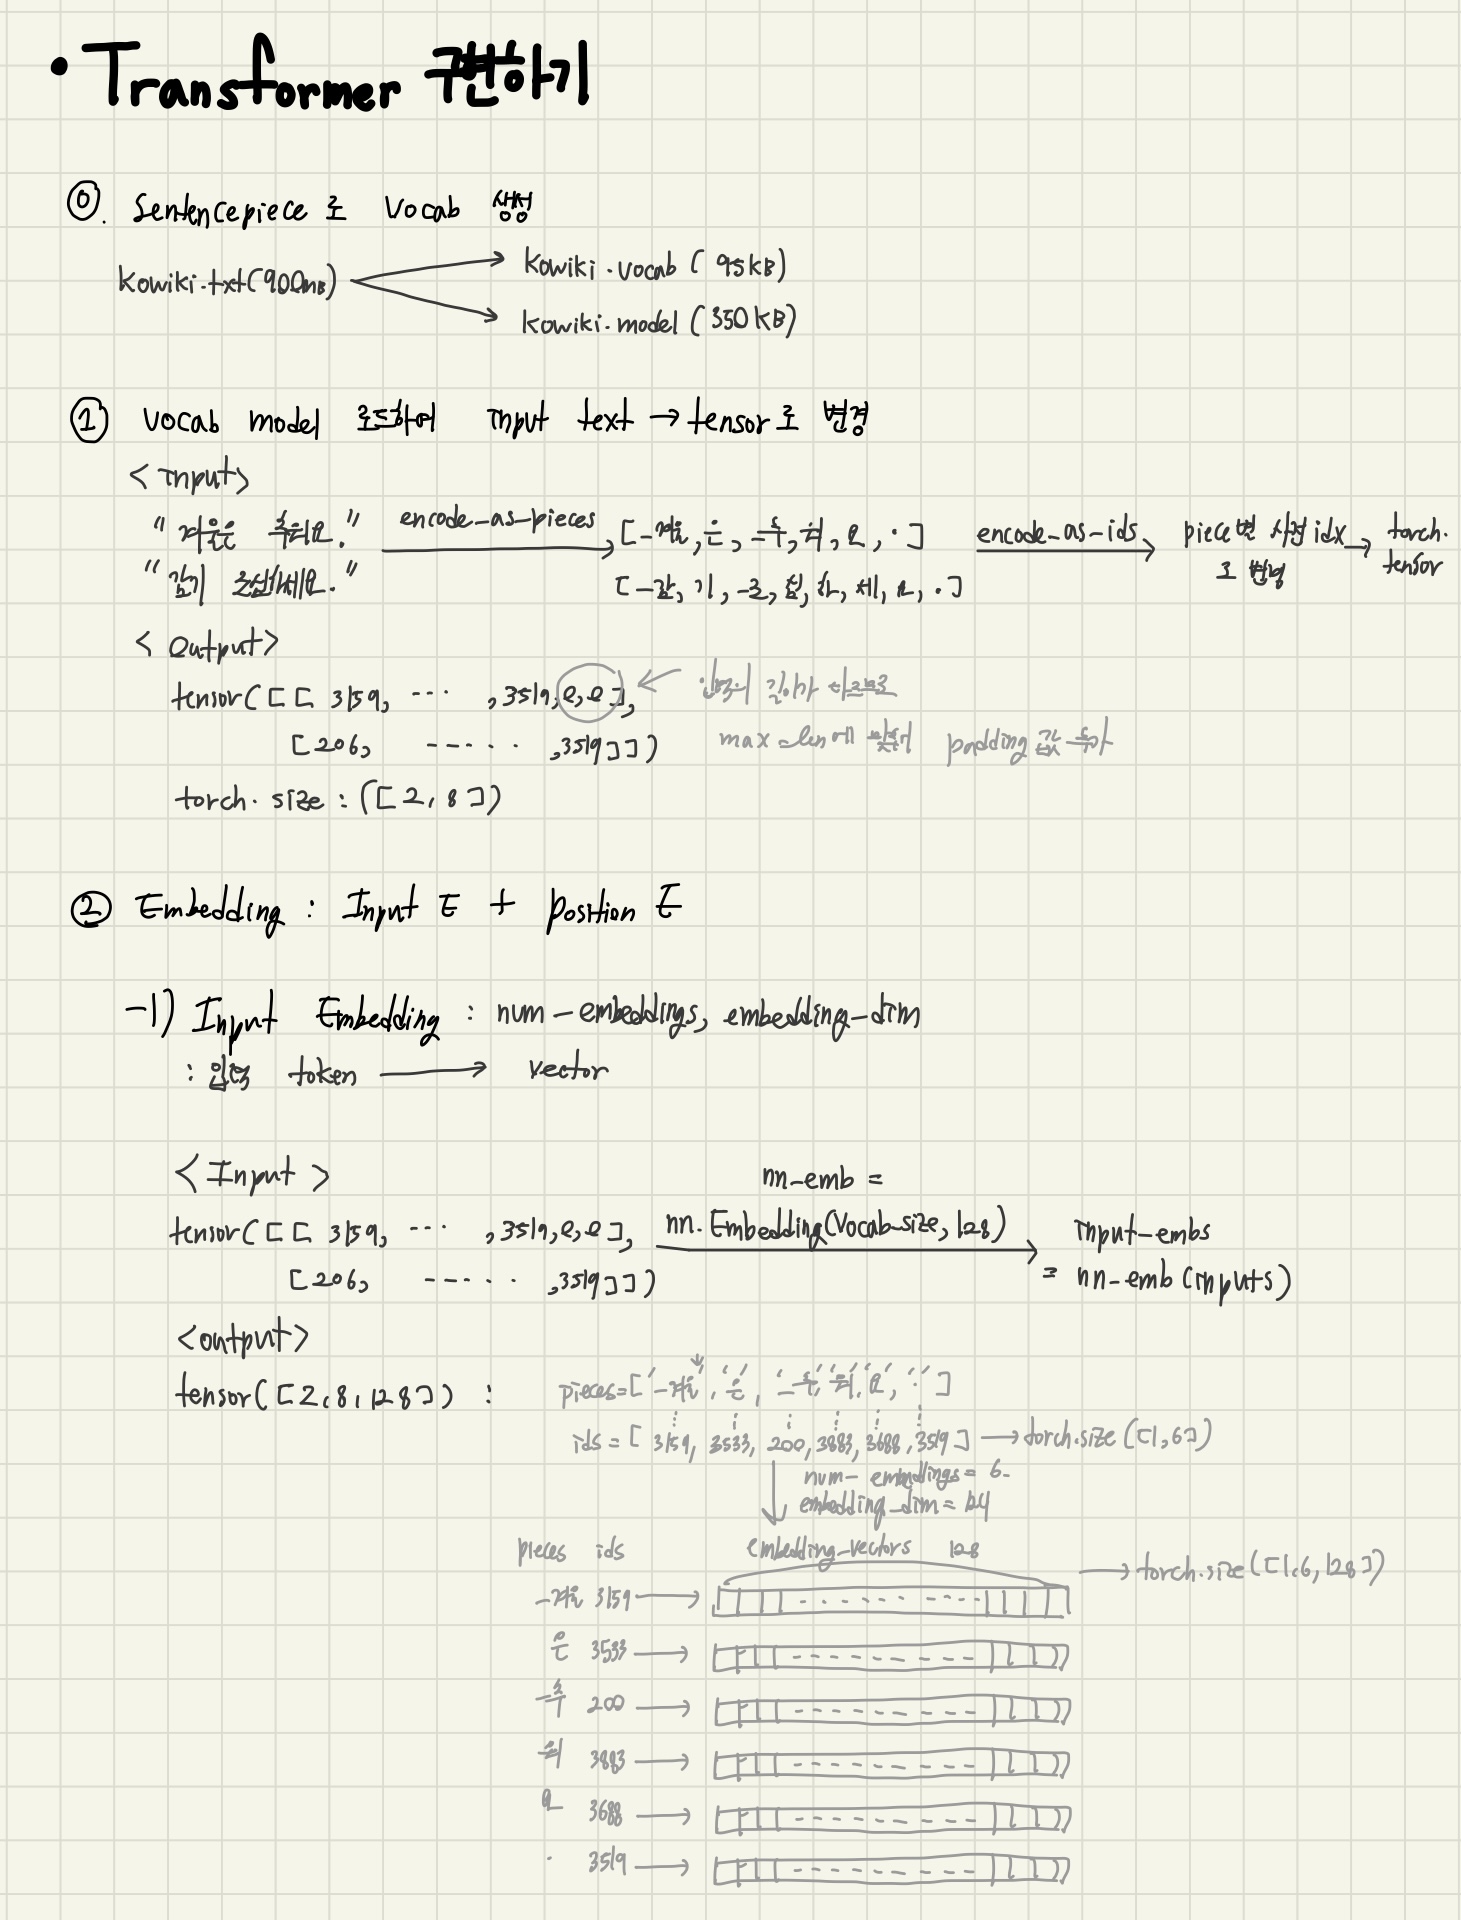 • Transformer 구현하기
⓪. Sentencepiece로 Vocab 생성
kowiki.txt(900MB)
kowiki.vocab (95kB)
kowiki.model (350kB)
① Vocab model 로드하여 Input text → tensor로 변경
<Input>
"겨울은 추워요." encode_as_pieces [_겨울, 은, _추, 워, 요, .] encode_as_ids piece별 사전 idx → torch.
"감기 조심하세요." [_감, 기, _조, 심, 하, 세, 요, .] 로 변형 tensor
<Output>
tensor([[3159, ... ,3519,0,0], ←
[206, ----.. ,3519]])
max_len에 맞춰서 padding 값 추가
torch.size : ([2, 8])
② Embedding : Input E + position E
-1) Input Embedding : num_embeddings, embedding_dim
: 입력 token → vector
<Input>
nn_emb =
tensor([[3159, ... ,3519,0,0], nn.Embedding(Vocab_size, 128) Input_embs
[206, ----.. ,3519]]) = nn_emb(inputs)
<output>
tensor([2,8,128]) : pieces=['_겨울', '은', '_추', '워', '요', '.']
ids = [3159, 3533, 200, 3883, 3688, 3519] → torch.size([1,6])
num_embeddings = 6.
embedding_dim = 64
pieces ids embedding_vectors 128
→ torch.size([1,6,128])
_겨울 3159 →
은 3533 →
_추 200 →
워 3883 →
요 3688 →
. 3519 →